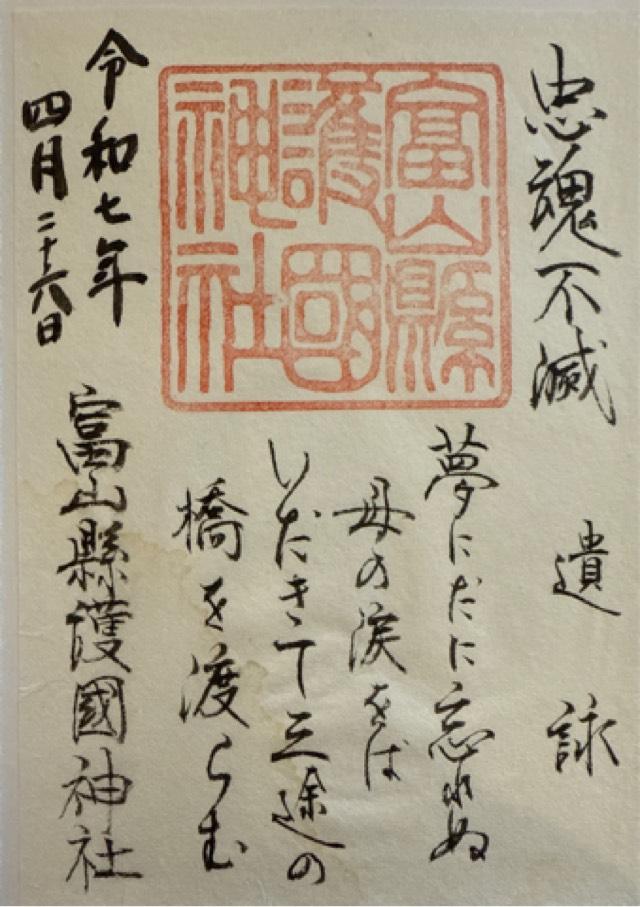 忠魂不滅
遺詠
夢にだに忘れぬ
母の涙をば
いだきて三途の
橋を渡らむ
富山縣
護國
神社
令和七年
四月二十六日
富山縣護國神社